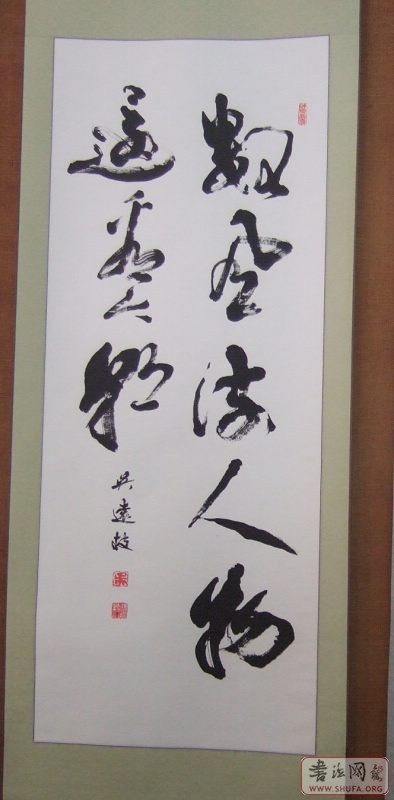 数风流人物
还看今朝
吴远枝
书法网
WWW.SHUFA.ORG